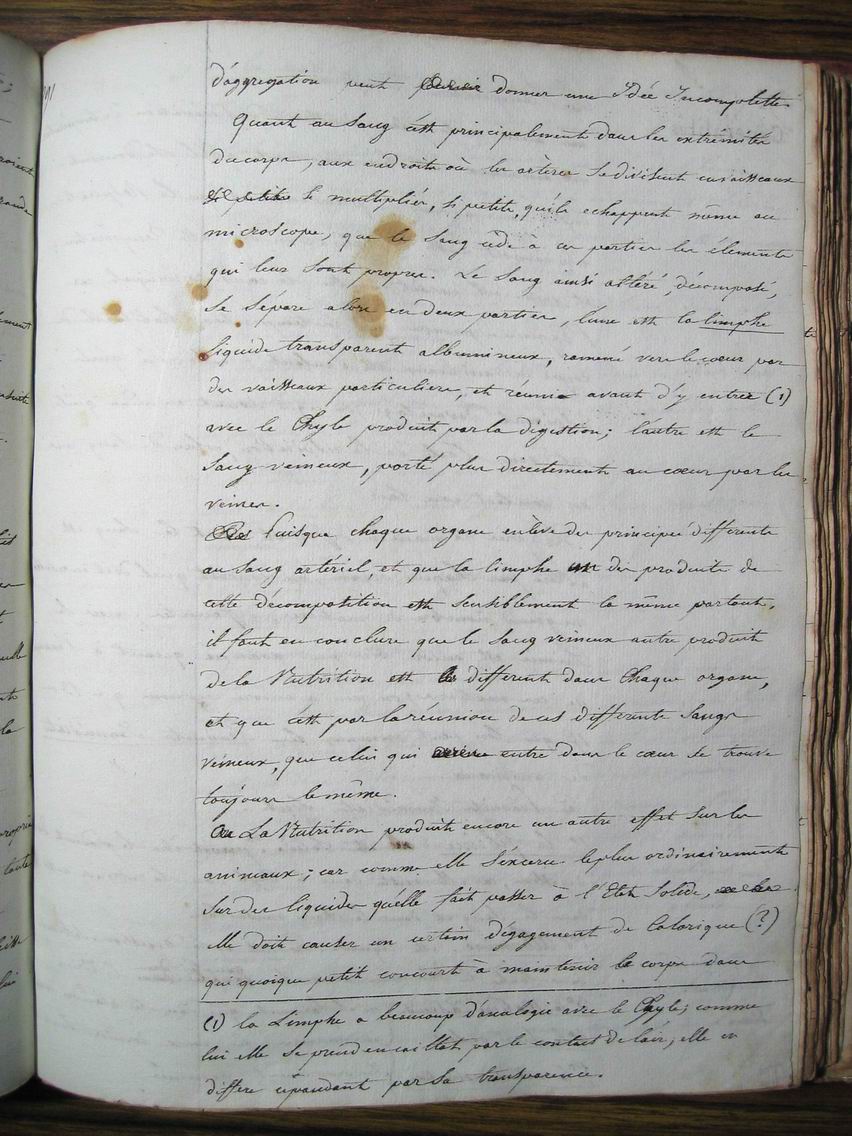 d'aggregation peut donner une Idée Incomplette.
Quant au Sang c'est principalement dans les extrémités
du corps, aux endroits où les artères se divisent en vaisseaux
si petits si multipliés, si petits, qu'ils echappent même au
microscope, que le Sang cède à ces parties les élements
qui leur sont propres. Le Sang ainsi altéré, décomposé,
se sépare alors en deux parties, l'une est la limphe
liquide transparent albumineux, ramené vers le cœur par
des vaisseaux particuliers, et réunie avant d'y entrer (1)
avec le Chyle produit par la digestion; l'autre est le
Sang veineux, porté plus directement au cœur par les
veines.
Puisque chaque organe enlève des principes differents
au Sang artériel, et que la limphe un des produits de
cette décomposition est sensiblement la même partout,
il faut en conclure que le Sang veineux autre produit
de la Nutrition est different dans Chaque organe,
et que c'est par la réunion de ces differents Sangs
veineux, que celui qui arrive entre dans le cœur se trouve
toujours le même.
La Nutrition produit encore un autre effet sur les
animaux; car comme elle s'exerce le plus ordinairement
sur des liquides qu'elle fait passer à l'Etat Solide,
elle doit causer un certain dégagement de Calorique (?)
qui quoique petit concourt à maintenir le corps dans
(1) la Limphe a beaucoup d'analogie avec le Chyle; comme
lui elle se prend en caillot par le contact de l'air; elle en
differe cependant par sa transparence.